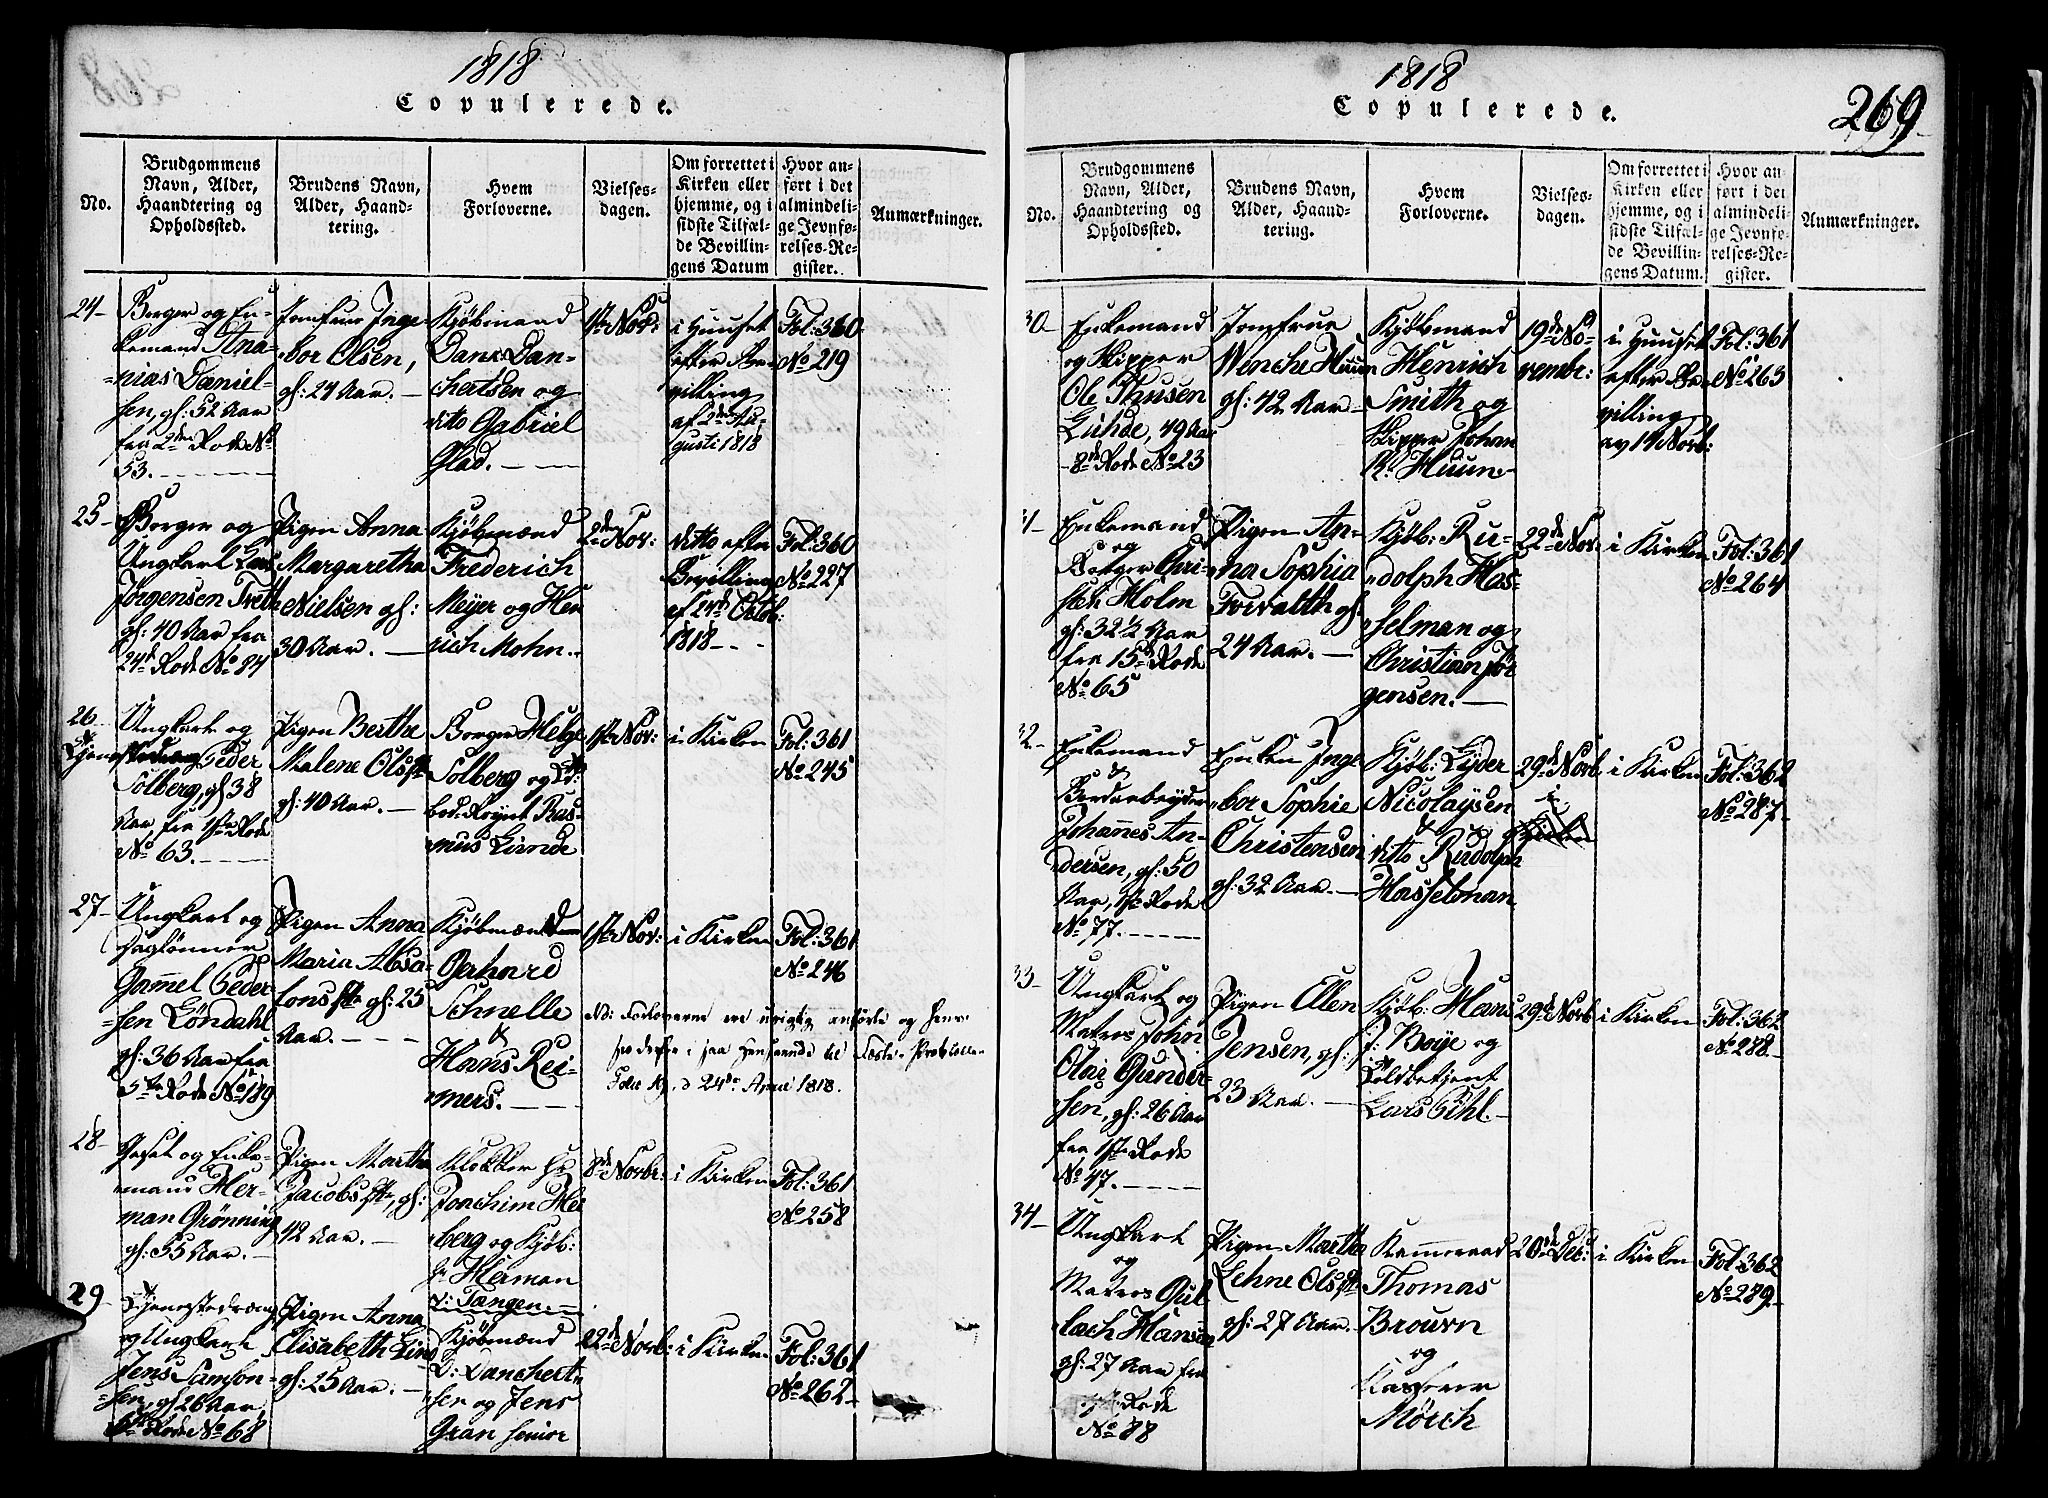 1818
Copulerede.
No.
Brudgommens
Navn, Alder,
Haandtering og
Opholdssted.
Brudens Navn,
Alder, Haand-
tering.
Hvem
Forloverne.
Vielses-
dagen.
Om forrettet i
Kirken eller
hjemme, og i
sidste Tilfæl-
de Bevillin-
gens Datum
Hvor an-
ført i det
almindeli-
ge Jevnfø-
relses-Re-
gister.
Anmærkninger.
24-
Borger og En-
kemand Ana-
-nias Daniel-
sen, gl: 52 Aar
fra 2den Rode No
53.
Jomfrue Inge
bor Olsen,
gl: 24 Aar.
Kjøbmænd
Danckert Dan-
chertsen og
ditto Gabriel
Glad.
1ste Nov:
i Huuset
efter Be-
villing
af 2den Au-
gusti 1818
Fol: 360
No 219
25-
Borger og
Ungkarl Lars
Jørgensen Treth
gl: 40 Aar fra
24de Rode No 84
Pigen Anna
Margaretha
Nielsen gl:
30 Aar.
Kjøbmænd
Frederich
Meyer og Hen
rich Mohn.
2den Nov:
ditto efter
Bevilling
af 24de Octob:
1818
Fol: 360
No 227
26
Ungkarl og
Tjenestedreng Peder
Solberg, gl 38
Aar, fra 1ste Rode
No 63.
Pigen Berthe
Malene Olsdtr
gl: 40 Aar.
Borger Helge
Solberg og
Rasmus Linde
1ste Nov:
i Kirken
Fol: 361
No 245
27-
Ungkarl og
Daglønner
Gammel Peder
-sen Løndahl
gl: 36 Aar fra
5te Rode No 189
Pigen Anna
Maria Absa-
lons dtr gl: 25
Aar.
Kjøbmænd
Gerhard
Schnelle
&
Hans Rei-
mers.
1ste Nov:
i Kirken
Fol: 361
No 246
NB: Forloverne ere urigtig anførte og
Folio 24de April 1818.
28-
og Enke-
mand Her-
man Grønning
gl: 55 Aar.
Pigen Martha
Jacobsdtr, gl:
42 Aar.
Klokker Hr
Joachim Hei
berg og Kjøb:
Herman
v: Tangen
8de Novbr:
i Kirken
Fol: 361
No 258
29-
Tjenestedreng
og Ungkarl
Jens Samson-
-sen, gl 26 Aar,
6te Rode No 68
Pigen Anna
Elisabeth Lind
gl: 25 Aar.
Kjøbmænd
D: Danchert-
sen og Jens
Gran senior
22de Novb:
i Kirke
Fol: 361
No 262
1818
Copulerede.
269
No.
Brudgommens
Navn, Alder,
Haandtering og
Opholdssted.
Brudens Navn,
Alder, Haand-
tering.
Hvem
Forloverne.
Vielses-
dagen.
Om forrettet i
Kirken eller
hjemme, og i
sidste Tilfæl-
de Bevillin-
gens Datum.
Hvor an
ført i det
almindeli-
ge Jevnfø-
relses-Re-
gister.
Anmærkninger.
30-
Enkemand
og Skipper
Ole Thusen
Guhde, 49 Aar
8de Rode No 23
Jomfrue
Wenche Huun
gl: 42 Aar
Kjøbmand
Henrich
Smith og
Skipper Johan
Huun
19de No-
vembr:
i Huuset
efter Be-
villing
av 14 Novb:
Fol: 361
No 263
31-
Enkemand
og
Borger Chri-
sten Holm
gl: 32 1/2 Aar
fra 15de Rode
No 65
Pigen An-
na Sophia
Forvalth gl:
24 Aar.
Kjøb: Ru-
dolph Has-
selman og
Christian Jør
gensen.
22de Nov.
i Kirken
Fol: 361
No 264
32-
Enkemand
&
Bordarbeyder
Johannes An-
dersen, gl: 50
Aar, 1ste Rode
No 77.
Enken Inge
bor Sophie
Christensen
gl: 32 Aar.
Kjøb: Lyder
Nicolaysen
&
ditto Rudolph
Hasselman
29de Novb
i
Kirken
i Kirken
Fol: 362
No 287
33-
Ungkarl og
Matros John
Olai Gunder-
sen, gl: 26 Aar
fra 1ste Rode
No 47.
Pigen Ellen
Jensen, gl:
23 Aar.
Kjøb: Hans
J: Boÿe og
Toldbetjent
Lars Pihl.
29de Novb
i Kirken
Fol: 362
No 288
34-
Ungkarl
og
Matros Gul
lach Hansen
gl: 27 Aar fra
Rode
No 88
Pigen Martha
Lehne Olsdtr
gl: 27 Aar.
Kammeraad
Thomas
Brouvn
og
Kasserer
Mørch
20de Deb:
i Kirken
Fol: 362
No 289